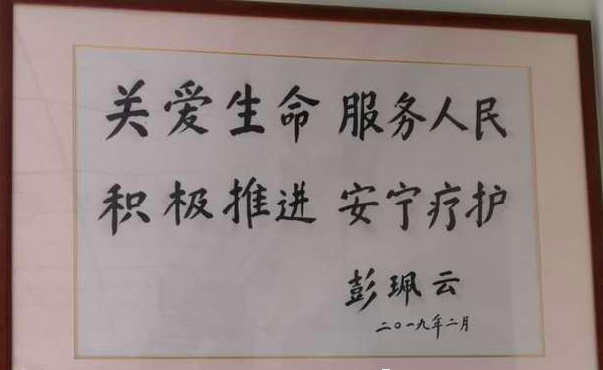 关爱生命 服务人民
积极推进 安宁疗护
彭珮云
二〇一九年二月